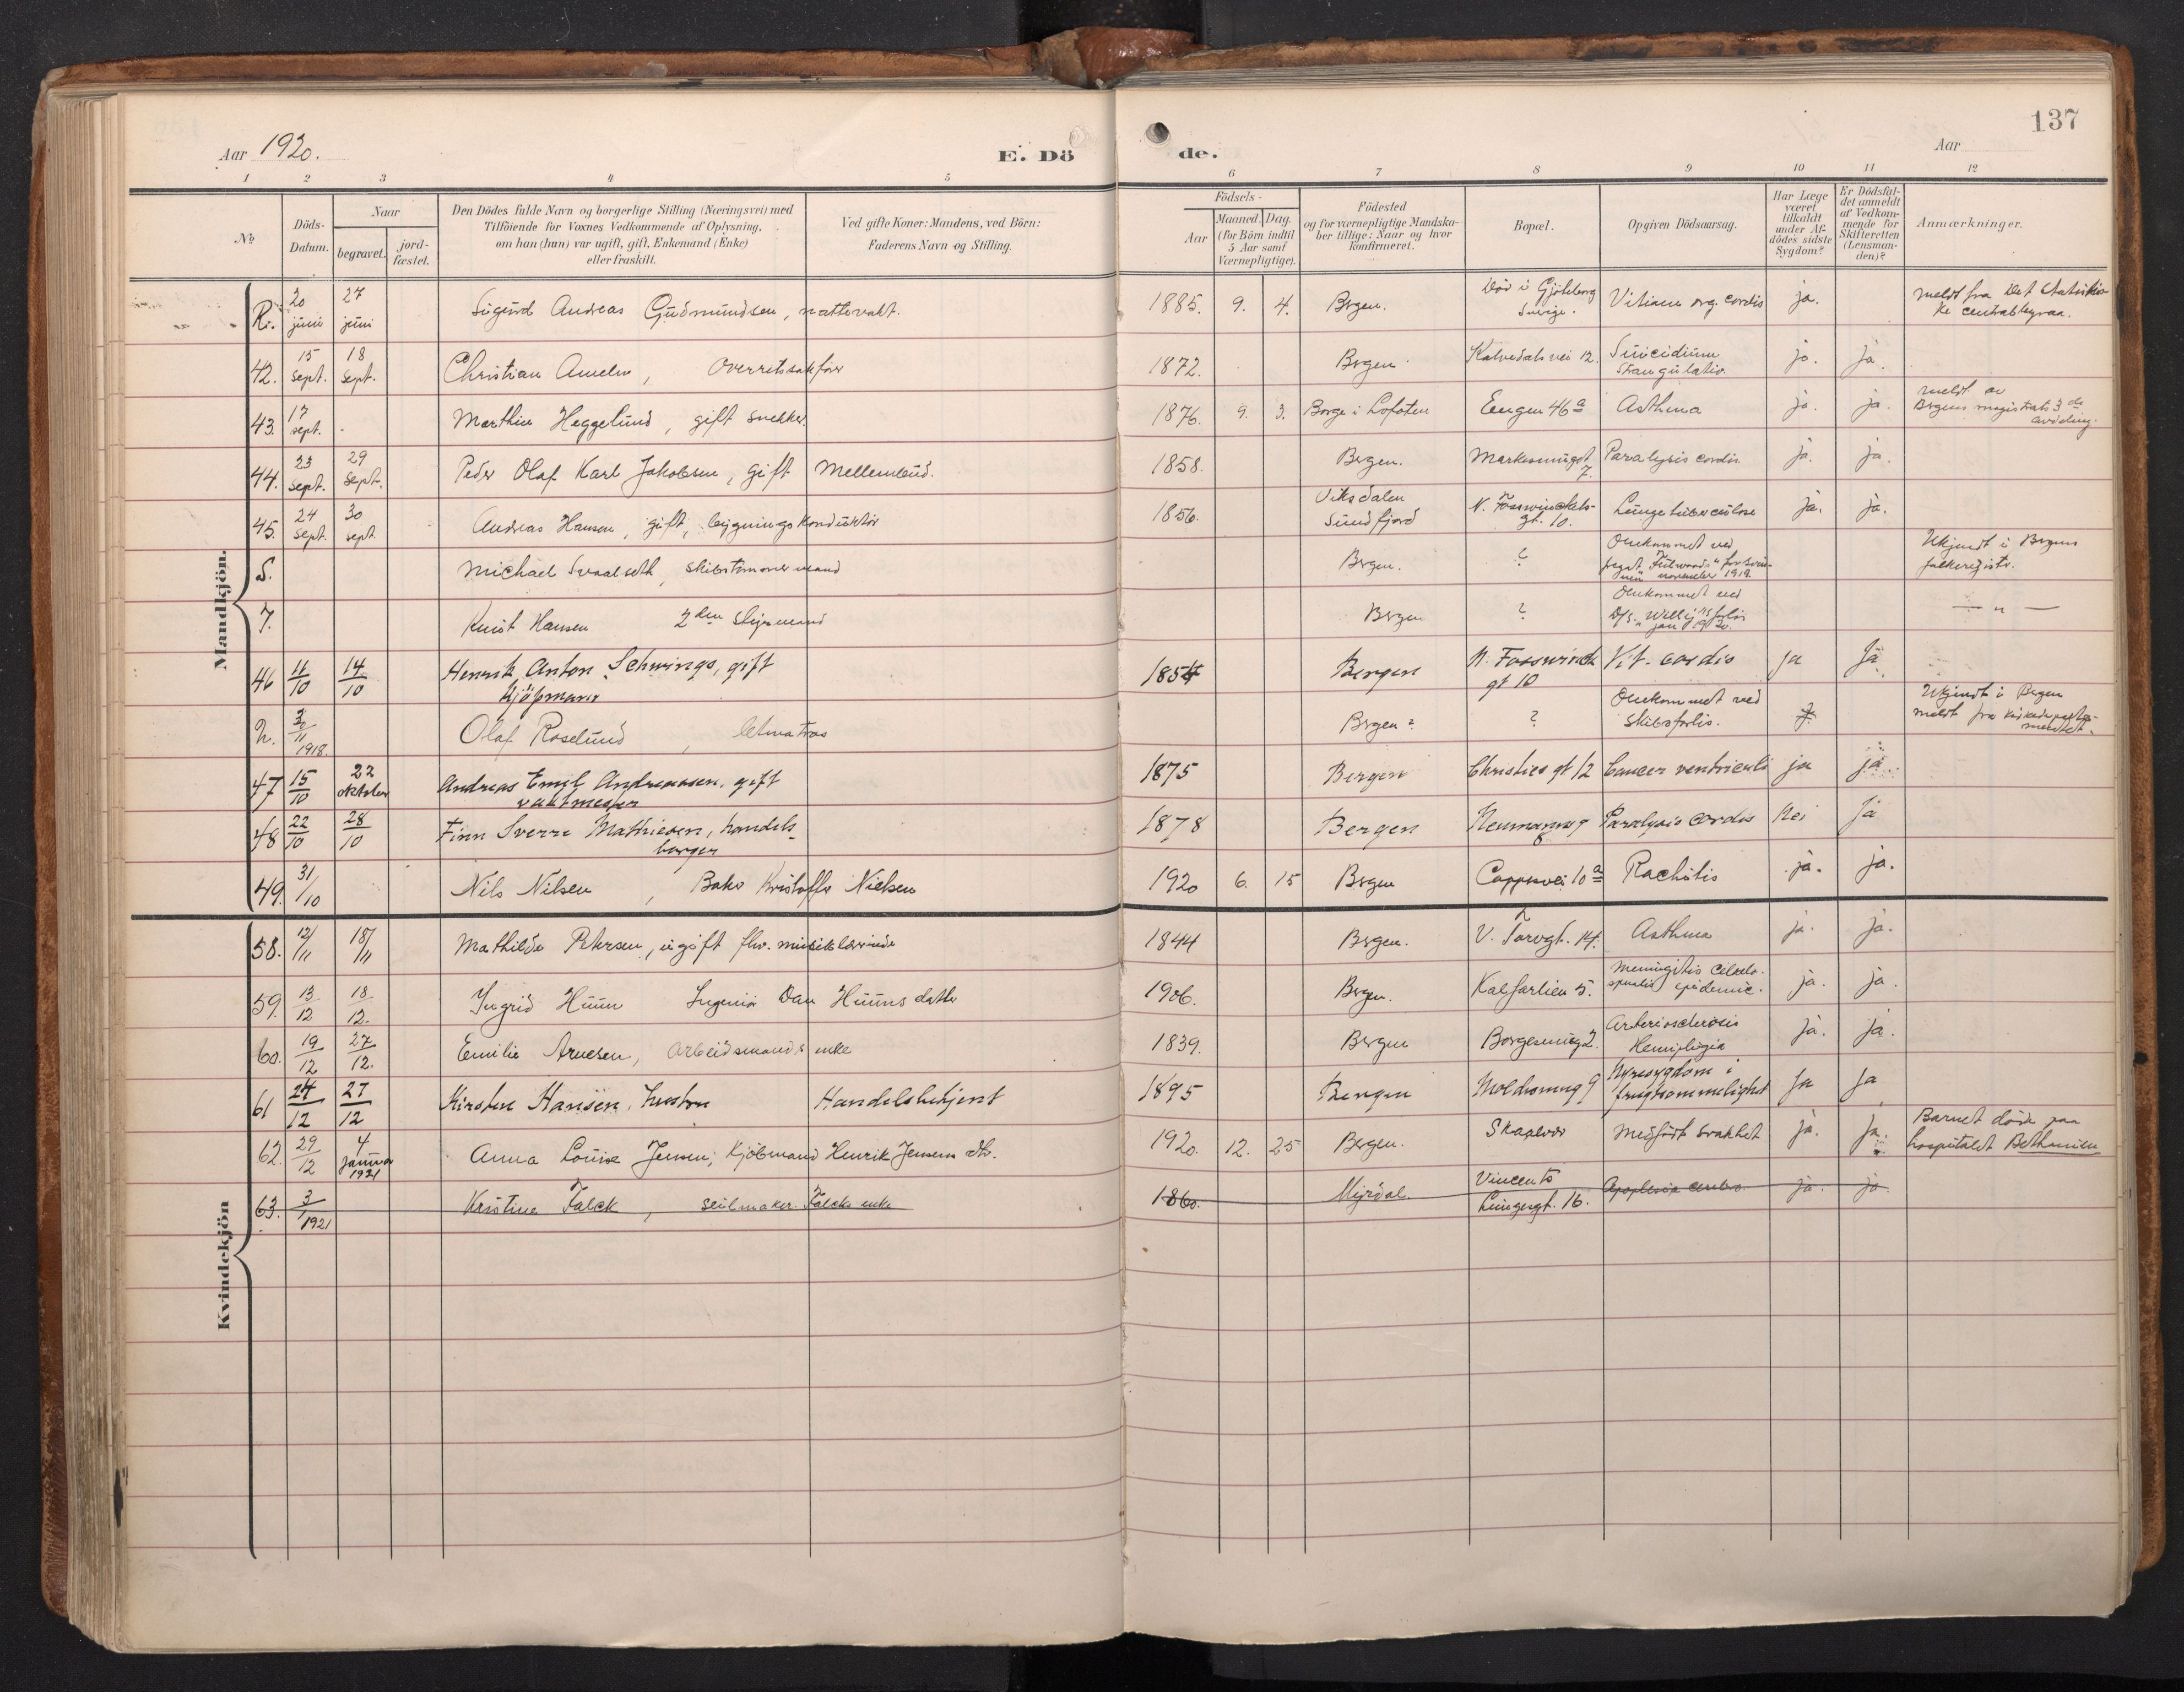 137
Aar 1920.
E. Dö
de.
Aar
1 2 3 4 5 6 7 8 9 10 11 12
No
Döds-
Datum.
Naar
begravet.
jord-
fæstet.
Den Dödes fulde Navn og borgerlige Stilling (Næringsvei) med
Tilföiende for Voxnes Vedkommende af Oplysning,
om han (hun) var ugift, gift, Enkemand (Enke)
eller fraskilt.
Ved gifte Koner: Mandens, ved Börn:
Faderens Navn og Stilling.
Födsels-
Aar
Maaned. Dag.
(for Börn indtil
5 Aar samt
Værnepligtige).
Födested
og for værnepligtige Mandska-
ber tillige: Naar og hvor
konfirmeret.
Bopæl.
Opgiven Dödsaarsag.
Har Læge
været
tilkaldt
under Af-
dödes sidste
Sygdom?
Er Dödsfal-
det anmeldt
af Vedkom-
mende for
Skifteretten
(Lensman-
den)?
Anmærkninger.
Mandkjön.
20 juni 27 juni Sigurd Andreas Gudmundsen, nattevakt. 1885. 9. 4. Bergen. Död i Gjöteborg Sverige. Vitium org. cordis ja. meldt fra Det statisti-
ke centralbyraa.
42. 15 sept. 18 sept. Christian Ameln, Overretssakförer 1872. Bergen. Kalvedalsvei 12. Suicidium
Strangulatio ja. ja.
43. 17 sept. Marthin Heggelund, gift snekker. 1876. 9. 3. Borge i Lofoten Engen 46a Asthma ja. ja. meldt av
Bergens magistrats 3de
avdeling.
44. 23 sept. 29 sept. Peder Olaf Karl Jakobsen, gift 1858. Bergen. Markesmuget
7. Paralysis cordis. ja. ja.
45. 24 sept. 30 sept. Andreas Hansen, gift, bygningskonduktör 1856. Viksdalen
Sundfjord N. Fosswinckels-
gt. 10. Lungetuberculose ja. ja.
S. Michael Svaalseth, skibstömmermand Bergen. ? Omkommet ved
november 1919. Ukjendt i Bergens
folkeregister.
7. Knut Hansen 2den styrmand Bergen ? Omkommet ved
D/S. "Willy"s forlis
jan 1920. — " —
46 4/10 14/10 Henrik Anton Schwings, gift
Kjöpmann 1854 Bergen N. Fosswinck
gt 10 Vit. cordis ja Ja
2/11 1918. Olaf Roselund, letmatros Bergen? ? Omkommet ved
skibsforlis. Ukjendt i Bergen
meldt fra kirkedeparte-
mentet.
47 15/10 22 oktober Andreas Emil Andreassen, gift
vaktmester 1875 Bergen Christies gt 12 Cancer ventriculi ja ja
48 22/10 28/10 Finn Sverre Mathiesen, handels-
borger 1878 Bergen Neumannsg
8 Paralysis cordis Nei Ja
49. 31/10 Nils Nilsen, Baker Kristoffer Nielsen 1920 6. 15 Bergen Cappesvei 10a Rachitis ja. ja.
Kvindekjön
58. 12/11 18/11 Mathilde Petersen, ugift fhv. musiklærerinde 1844 Bergen. V. Torvgt. 14. Asthma ja. ja.
59. 13/12 18/12. Ingrid Huun Ingeniör Dan Huuns datter 1906. Bergen. Kalfarlien 5. Meningitis cerebro-
spinalis epidemic. ja. ja.
60. 19/12 27/12. Emilie Arnesen, Arbeidsmands enke 1839. Bergen Borgesmug 2. Arteriosclerosis
Hemiplegia ja. ja.
61 24/12 27/12 Kirsten Hansen, hustru Handelsbetjent 1895 Bergen Moldesmug 9 Nyresygdom i
frugtsommelighet Ja Ja
62. 29/12 4 januar 1921 Anna Louise Jensen, Kjöbmand Henrik Jensens dtr. 1920. 12. 25 Bergen. Skaalevik Medfödt svakhet ja. ja. Barnet döde paa
hospitalet Bethanien
63. 3/1 1921 Kristine Falck, seilmaker Falcks enke 1860. Myrdal Vincents
Lungegt. 16. Apoplexia cerebri ja. ja.